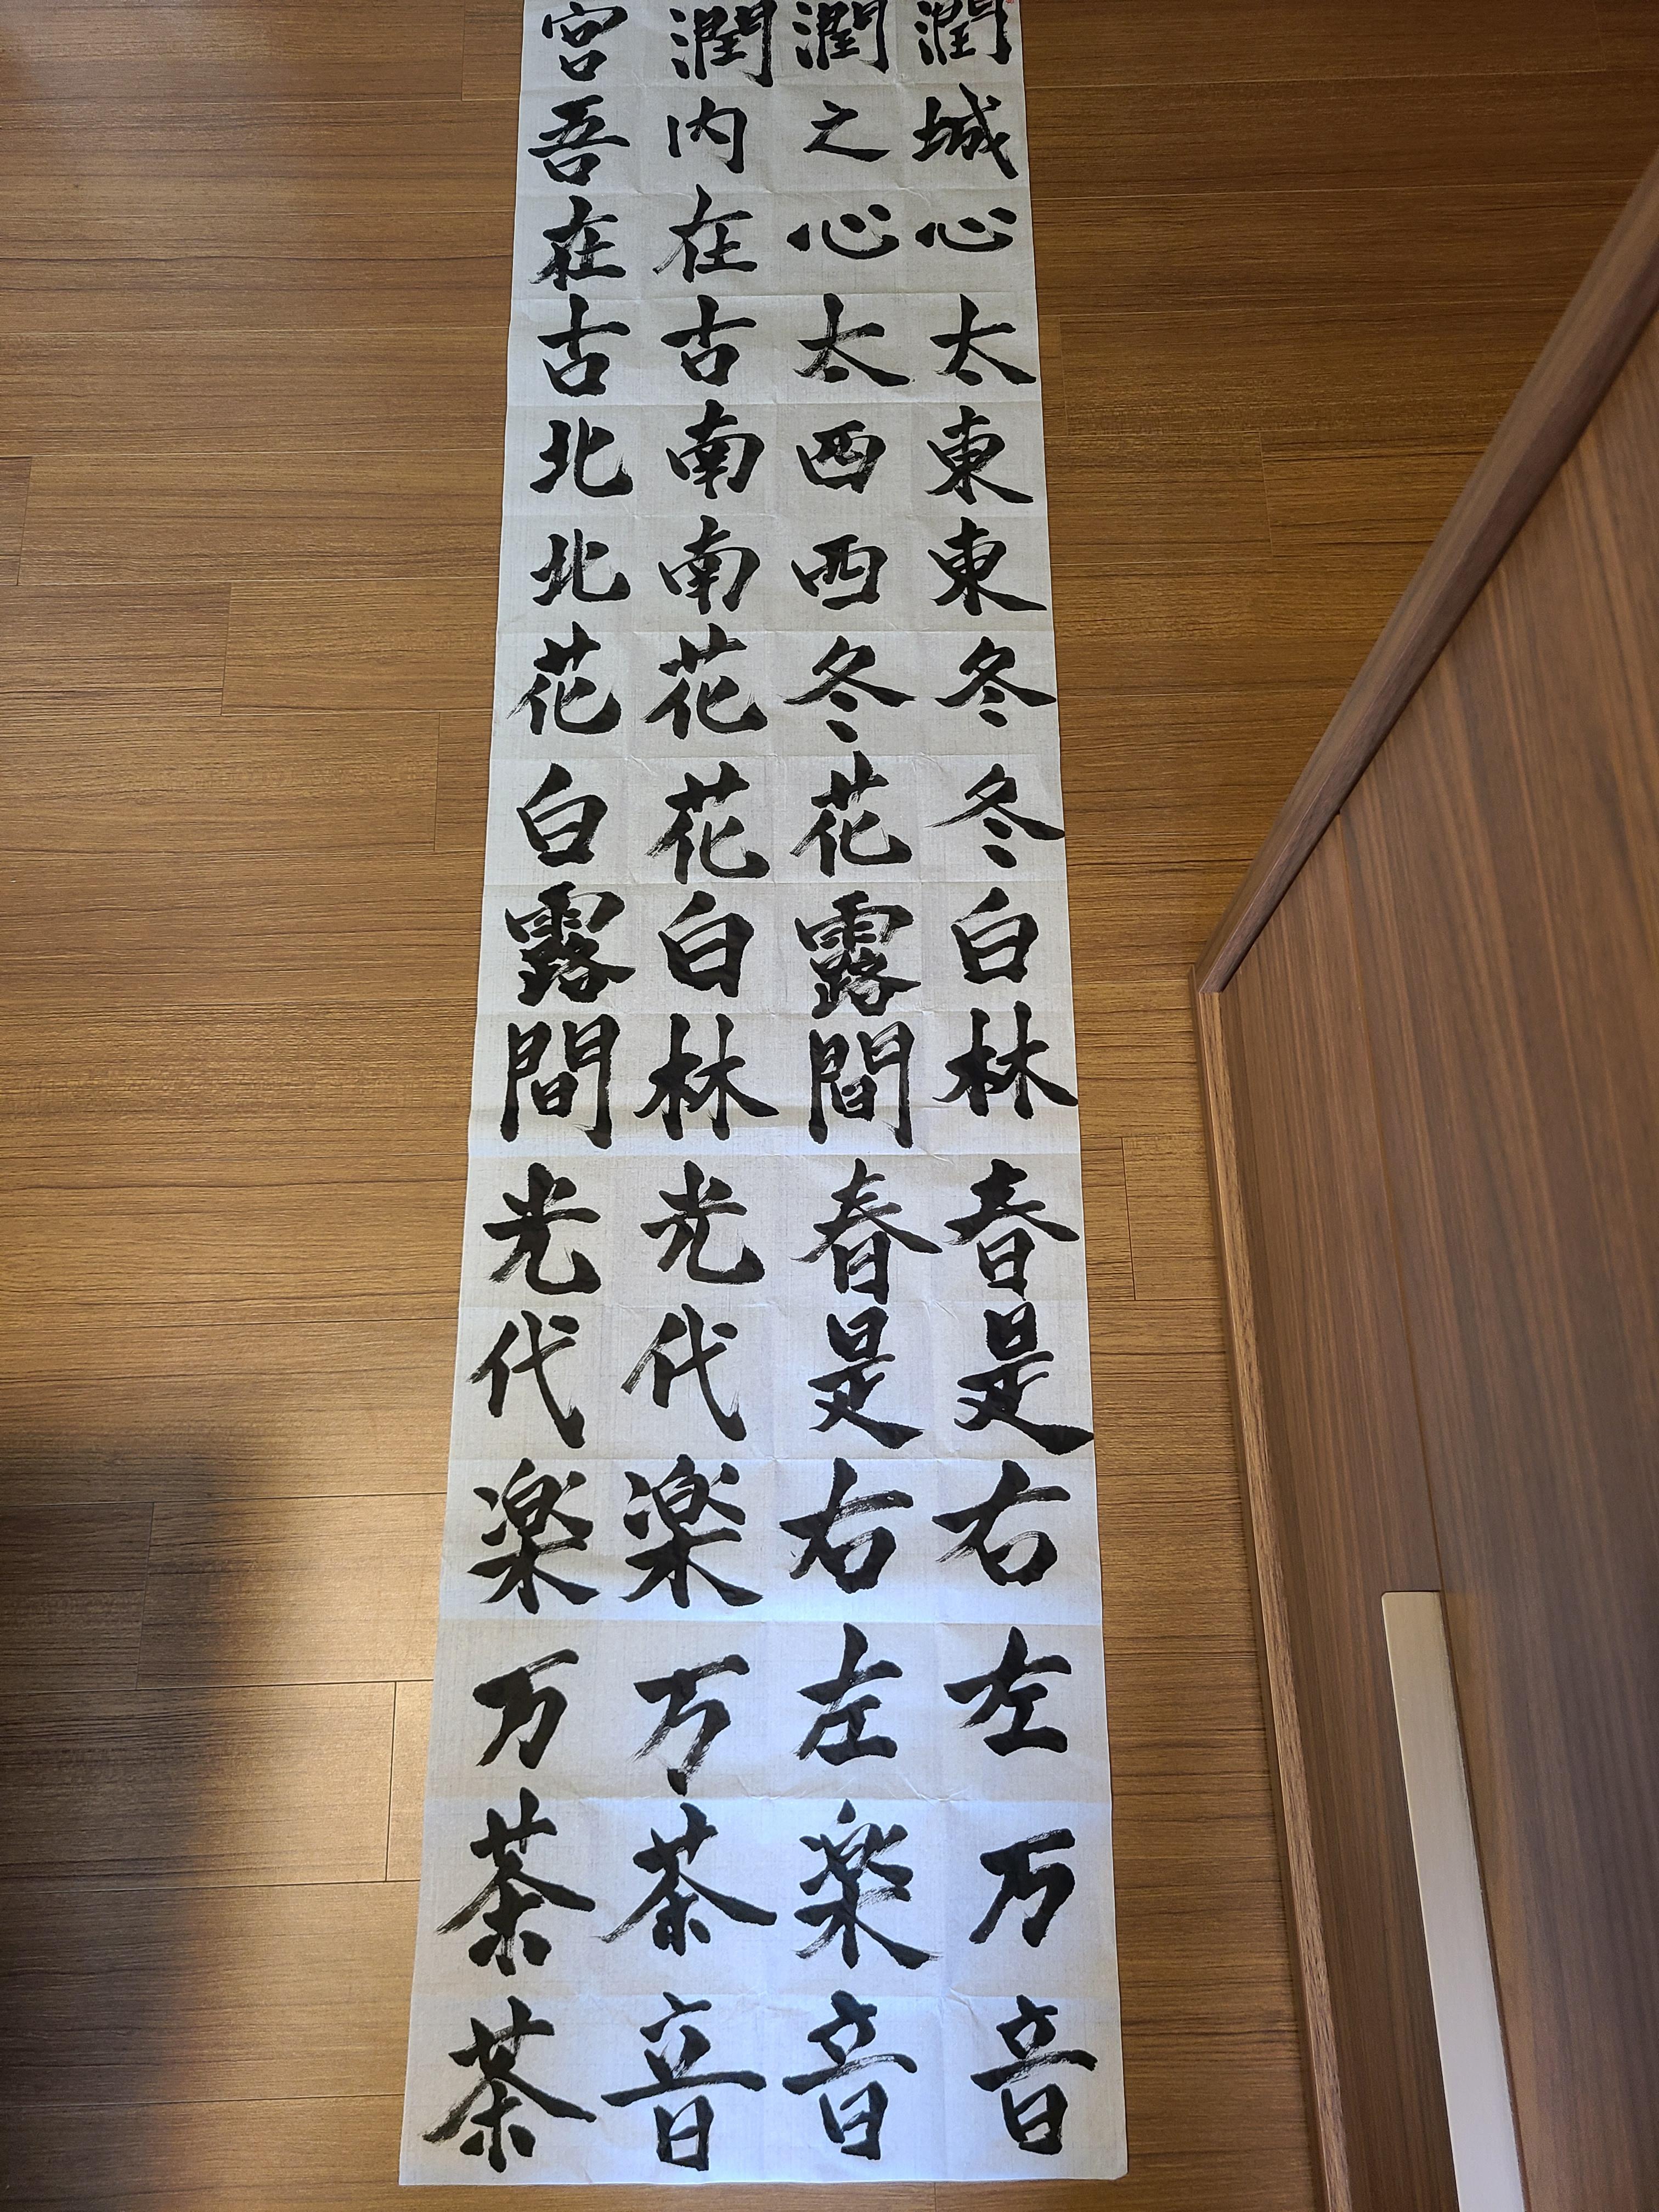 潤城心太東東冬冬白林春是右左万音
潤之心太西西冬花露間春是右左楽音
潤内在古南南花花白林光代楽万茶音
宮吾在古北北花白露間光代楽万茶茶